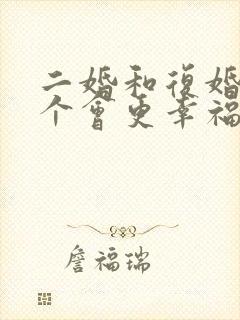 二婚和復婚
个會更幸福
詹福瑞